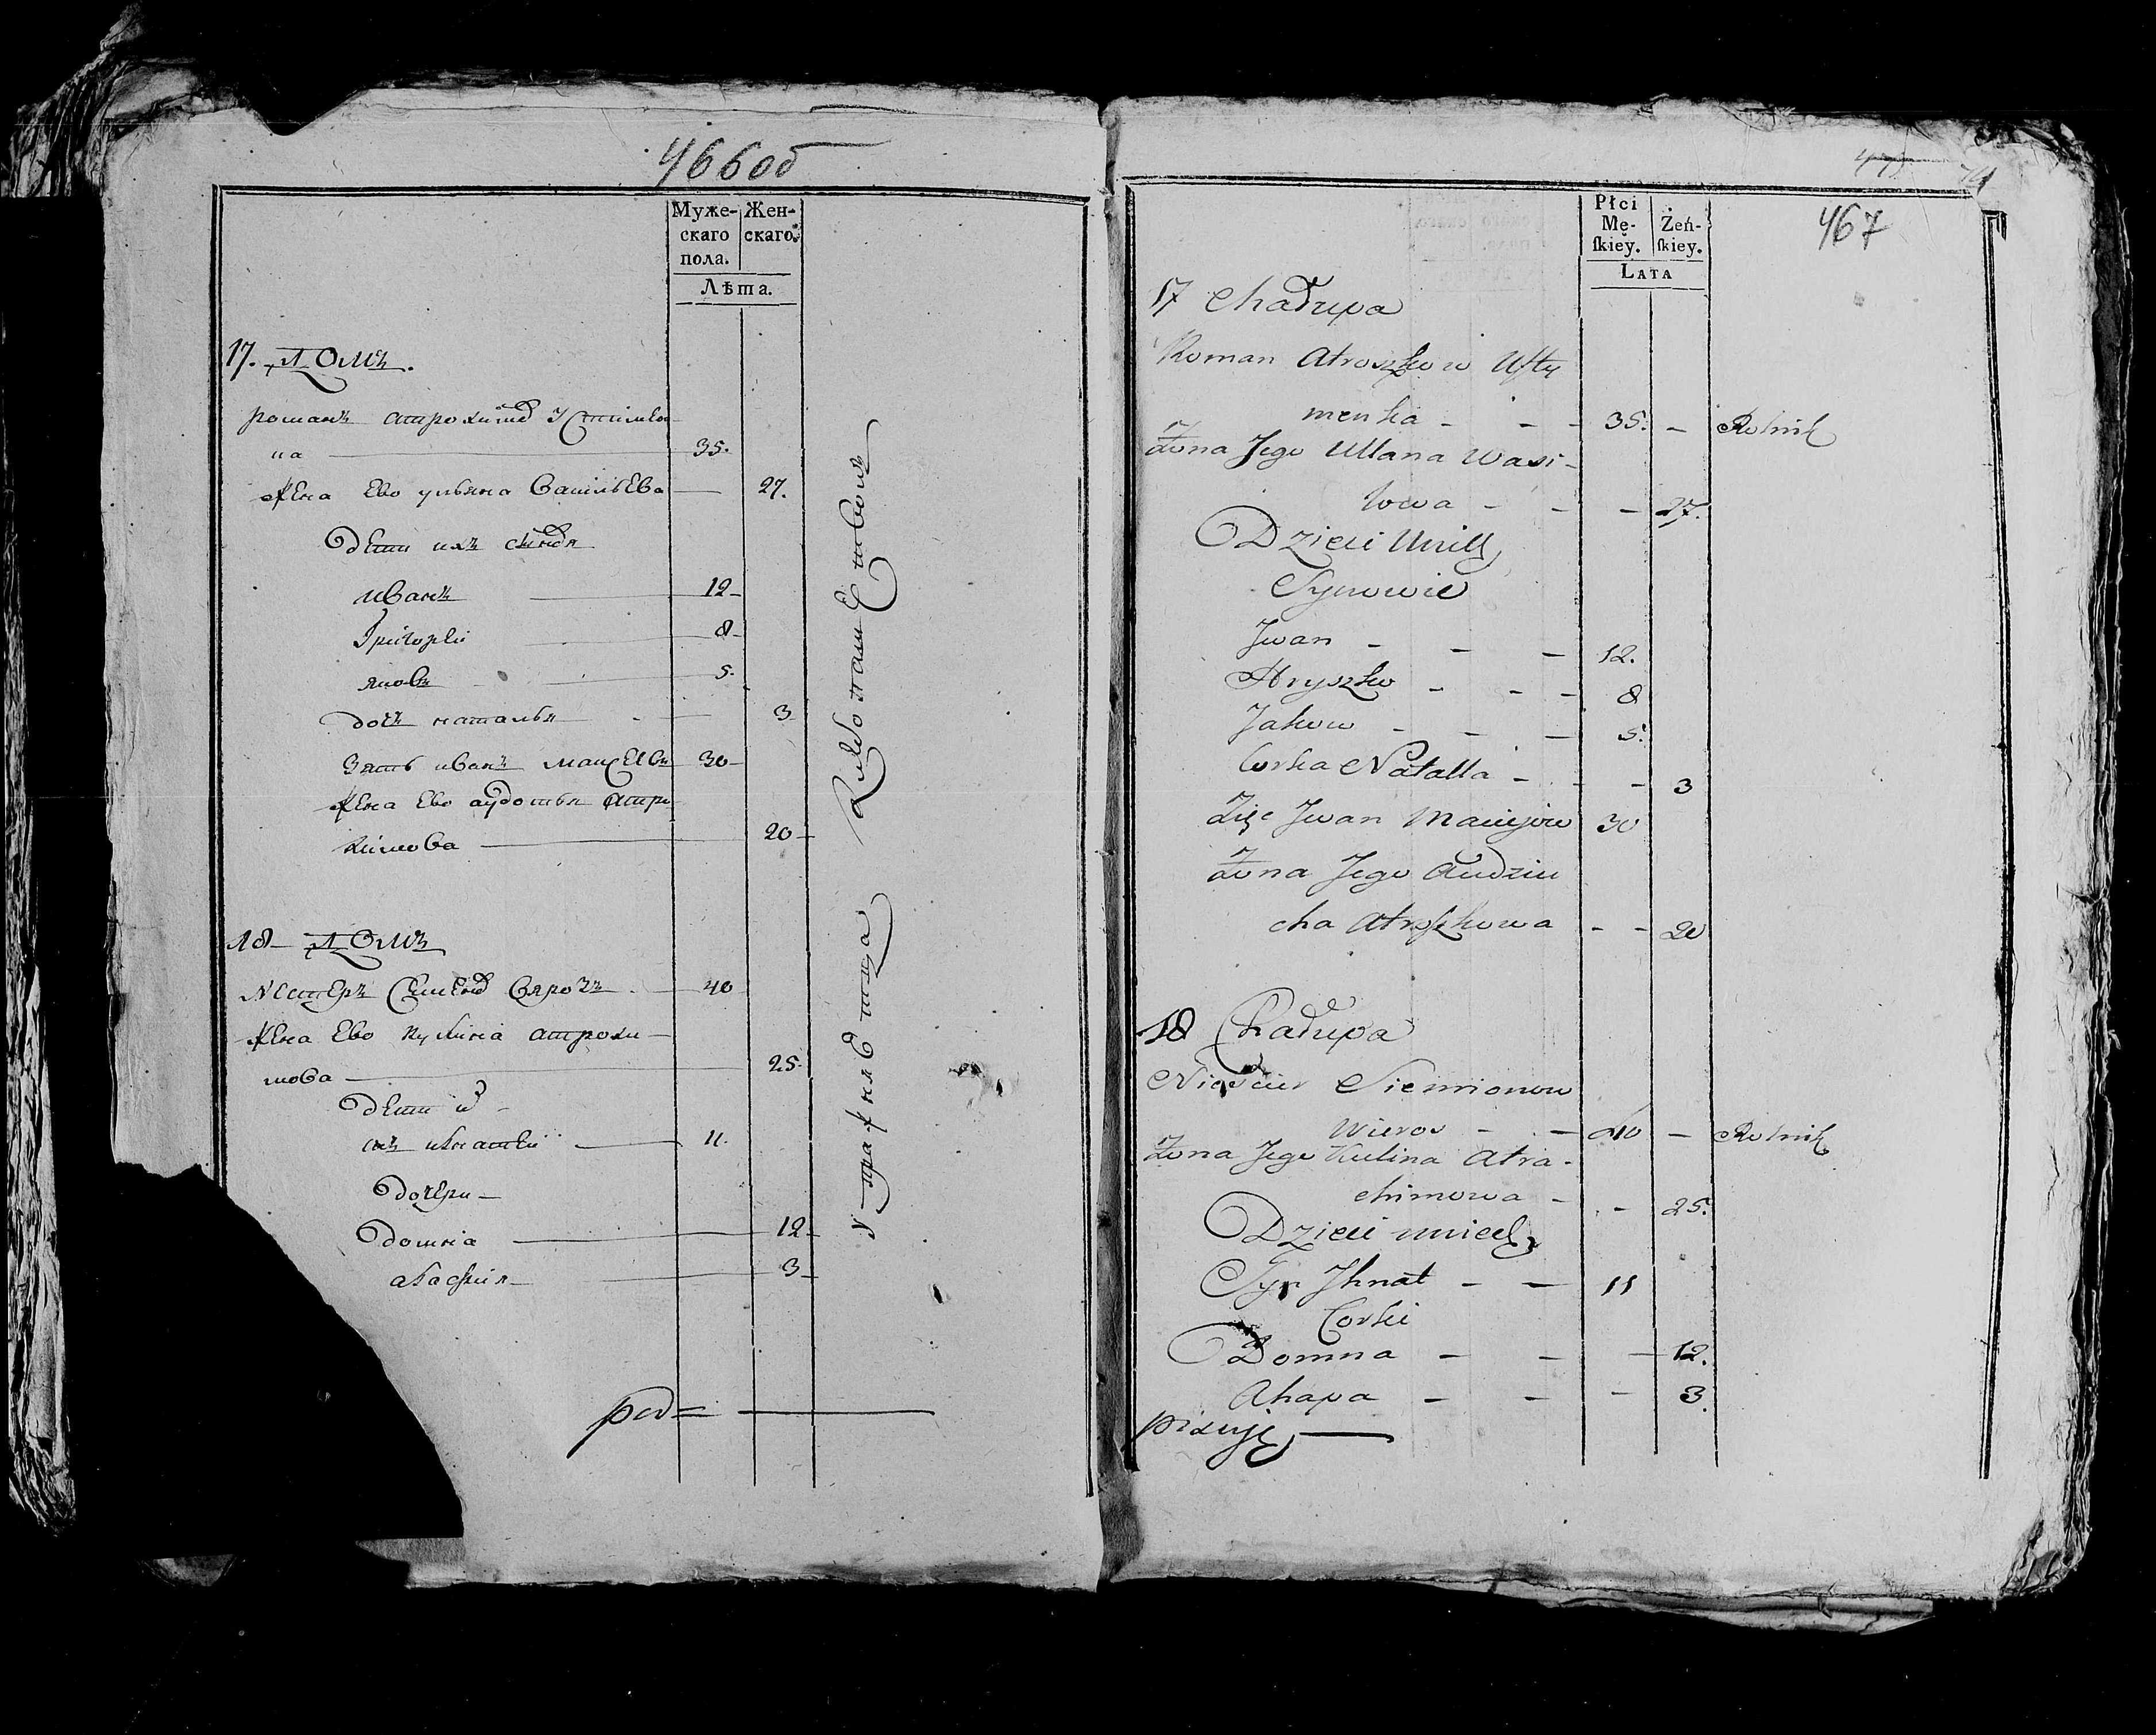 466об
Муже- Жен-
скаго скаго.
пола.
Лѣта.
17. Домъ.
романъ
на 35.
жена Ево ульяна Васильева 27.
Дети ихъ
иванъ 12
григорей 8
яковъ 5.
дочь наталья 3
Зять иванъ 30
жена Ево аудотья атро
химова 20
18 Домъ
Nестеръ 40
жена Ево кулина атрохи
мова 25.
Дети и
хъ игнатей 11.
Дочери
Домна 12
агафия 3
Упражняетца хлебопашествомъ
471
467
Płci
Mę- Żeń-
ſkiey. ſkiey.
LATA
17 Chałupa
Roman Atroszkow Uſty
menka - - - 35. - Rolnik
Żona Jego Ullana Wasi-
lowa - - - 27.
Dzieci
Synowie
Jwan - - - 12.
Hryszko - - - 8
Jakow - - - 5.
Corka Natalla - - - 3
Zięc Jwan Maciejow 30
Żona Jego Audziu
cha Atroſzkowa - - 20
18 Chałupa
Niescier Siemionow
Wieroz - - 40 - Rolnik
Żona Jego Kulina Atra-
chimowa - - - 25.
Dzieci
Syn Jhnat - - 11
Corki
Domna - - - 12.
Ahapa - - - 3.